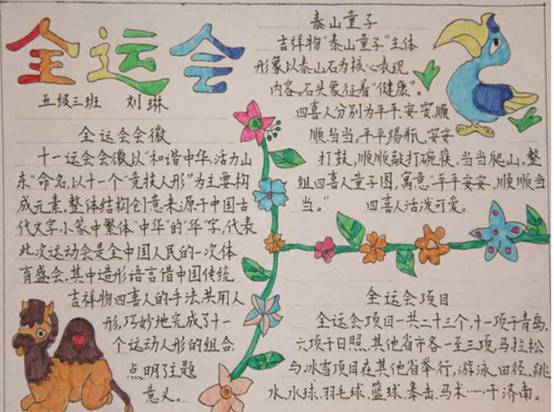 全运会
五级三班 刘琳
全运会会徽
十一运会会徽以“和谐中华,活力山
东”命名,以十一个“竞技人形”为主要构
成元素,整体结构创意来源于中国古
代文字小篆中繁体“中华”的“华”字,代表
此次运动会是全中国人民的一次体
育盛会,其中造形语言借中国传统
吉祥物四喜人的手法,共用人
形,巧妙地完成了十一
个运动人形的组合,
点明了主题
意义。
泰山童子
吉祥物“泰山童子”主体
形象以泰山石为核心表现
内容,石头象征着“健康”。
四喜人分别为平平、安安、顺
顺、当当。平平揭瓶,安安
打鼓,顺顺敲打碗筷,当当爬山,整
组四喜人童子图,寓意“平平安安,顺顺当
当。” 四喜人活泼可爱。
全运会项目
全运会项目一共二十三个,十一项于青岛,
六项于日照,其他省市各一至三项,马拉松
与冰雪项目在其他省举行,游泳、田径、跳
水、水球、羽毛球、篮球、拳击、马术……于济南。